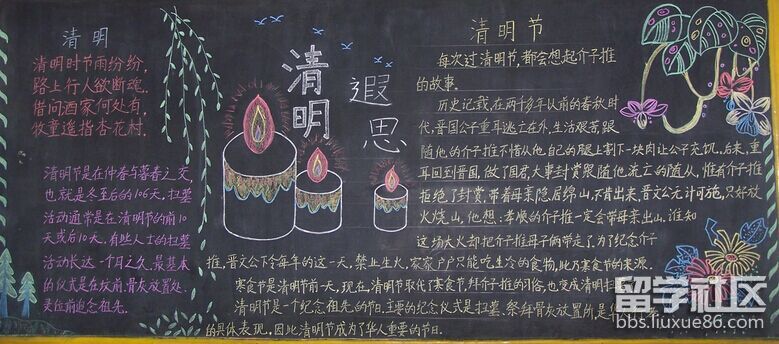 清明
清明时节雨纷纷,
路上行人欲断魂。
借问酒家何处有,
牧童遥指杏花村。
清明节是在仲春与暮春之交,
也就是冬至后的106天,扫墓
活动通常是在清明节的前10
天或后10天。有些人士的扫墓
活动长达一个月之久。最基本
的仪式是在坟前、骨灰放置处、
灵位前追念祖先。
清明
遐思
清明节
每次过清明节,都会想起介子推
的故事。
历史记载,在两千多年以前的春秋时
代,晋国公子重耳逃亡在外,生活艰苦,跟
随他的介子推不惜从他自己的腿上割下一块肉让公子充饥。后来,重
耳回到晋国,做了国君,大事封赏跟随他流亡的随从,惟有介子推
拒绝了封赏,带着母亲隐居绵山,不肯出来,晋文公无计可施,只好放
火烧山,他想:孝顺的介子推一定会带母亲出山。谁知
这场大火却把介子推母子俩带走了,为了纪念介子
推,晋文公下令每年的这一天,禁止生火,家家户户只能吃生冷的食物,此乃寒食节的来源。
寒食节是清明节前一天,现在,清明节取代了寒食节,拜介子推的习俗,也变成清明扫
清明节是一个纪念祖先的节日。主要的纪念仪式是扫墓、祭拜骨灰放置所,是
的具体表现。因此清明节成为了华人重要的节日。
留学社区
bbs.liuxue86.com